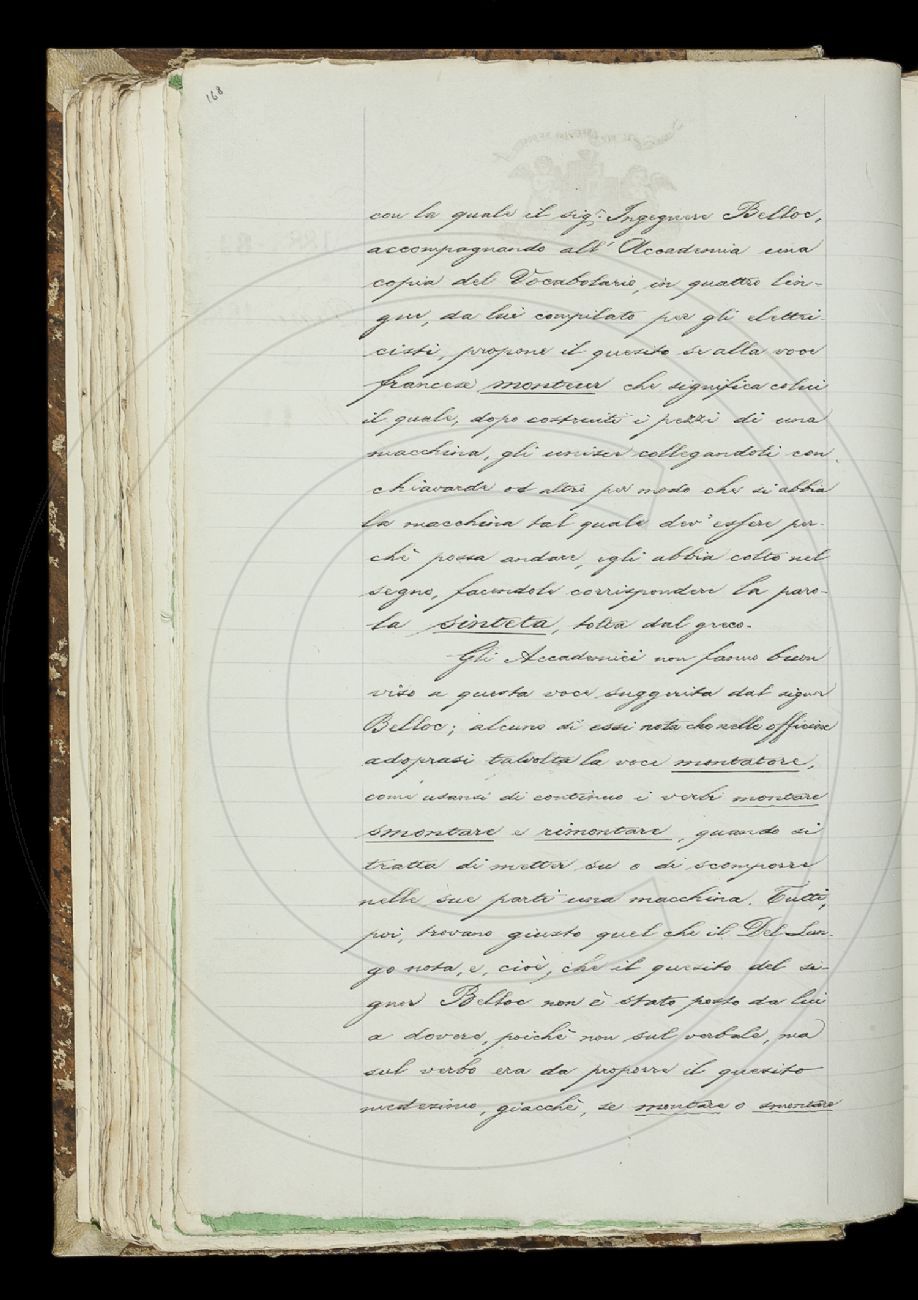 168
con la quale il sig.r Ingegnere Belloc,
accompagnando all'Accademia una
copia del Vocabolario, in quattro lin-
gue, da lui compilato per gli elettri-
cisti, propone il quesito se alla voce
francese monteur che significa colui
il quale, dopo costruiti i pezzi di una
macchina, gli unisce collegandoli con
chiavarde od altro per modo che si abbia
la macchina tal quale dev'essere per-
chè possa andare, egli abbia colto nel
segno, facendole corrispondere la paro-
la sinteta, tolta dal greco.
Gli Accademici non fanno buon
viso a questa voce suggerita dal signor
Belloc; alcuno di essi nota che nelle officine
adoprasi talvolta la voce montatore,
come usansi di continuo i verbi montare
smontare e rimontare, quando si
tratta di metter su o di scomporre
nelle sue parti una macchina. Tutti,
poi, trovano giusto quel che il Del Lun-
go nota, e, cioè, che il quesito del si-
gnor Belloc non è stato posto da lui
a dovere, poichè non sul verbale, ma
sul verbo era da proporre il quesito
medesimo, giacchè, se montare o smontare